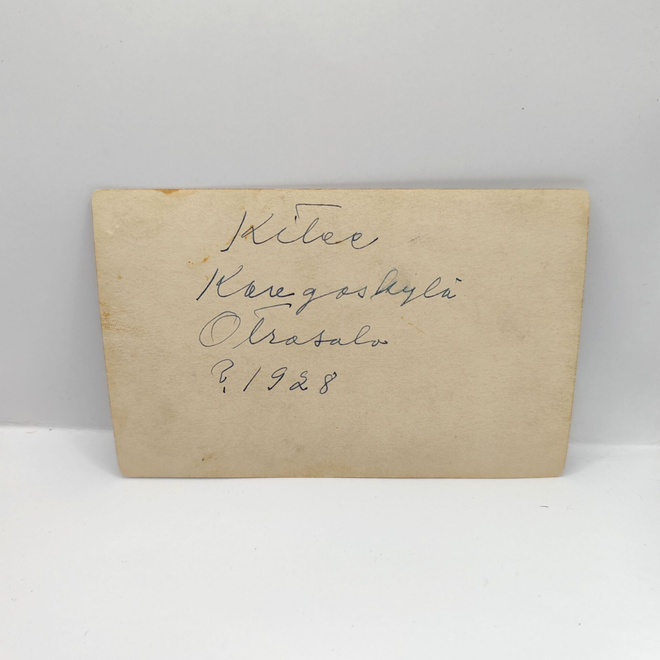 Kitee
Karegoskylä
Otrasalo
?. 1928